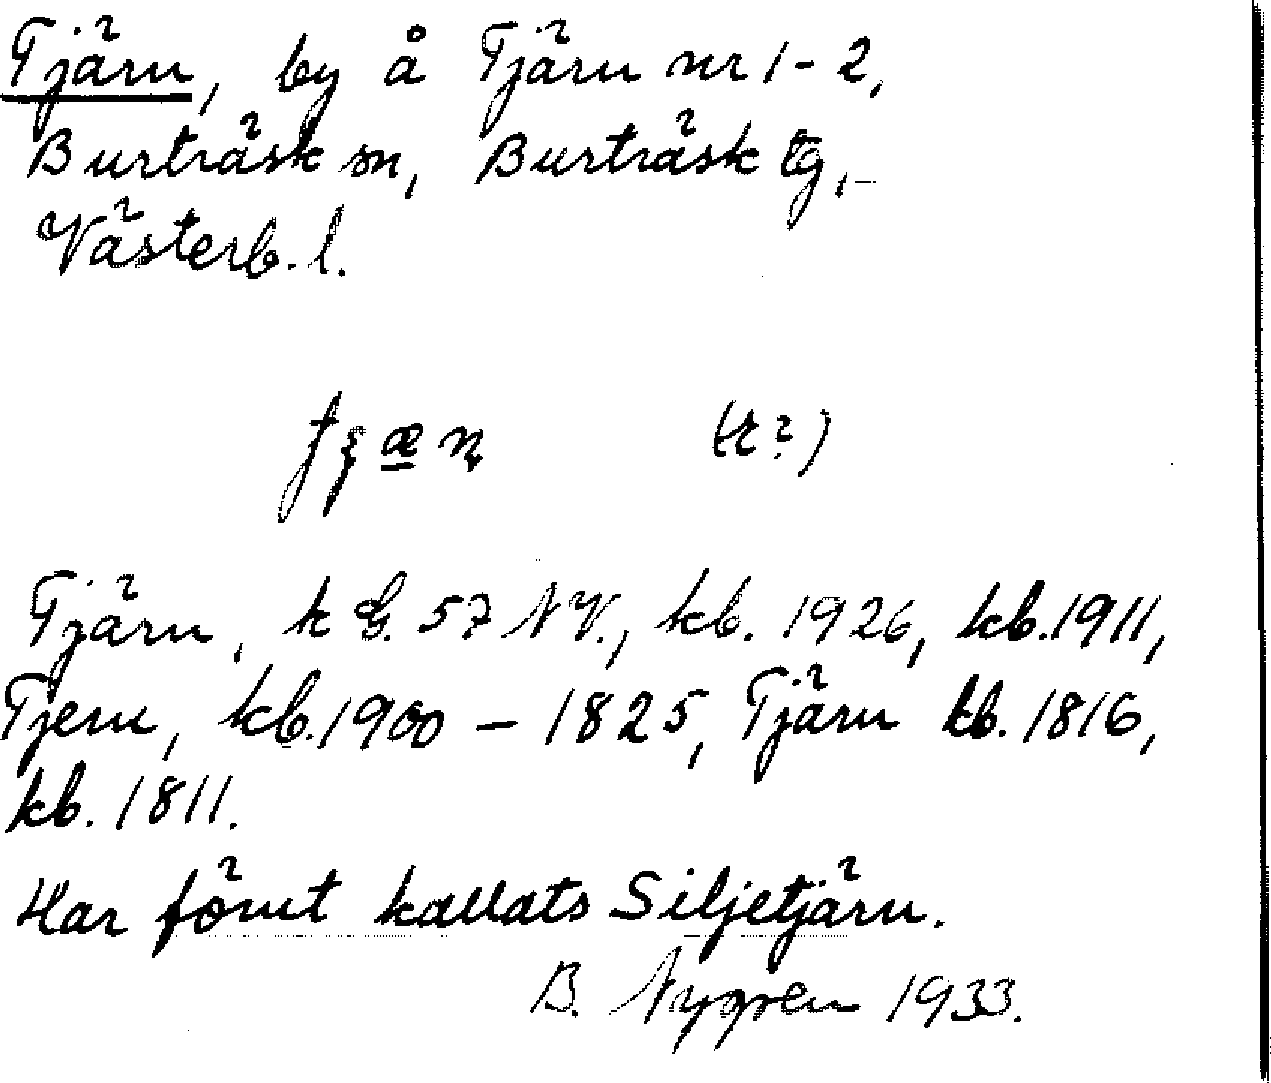 Tjärn, by å Tjärn nr 1-2,
Burträsk sn, Burträsk tg,
Västerb. l.
Tjärn, k G. 57 NV., kb. 1926, kb. 1911,
Tjern, kb. 1900 - 1825, Tjärn kb. 1816,
kb. 1811.
Har förut kallats Siljetjärn.
B. Nygren 1933.